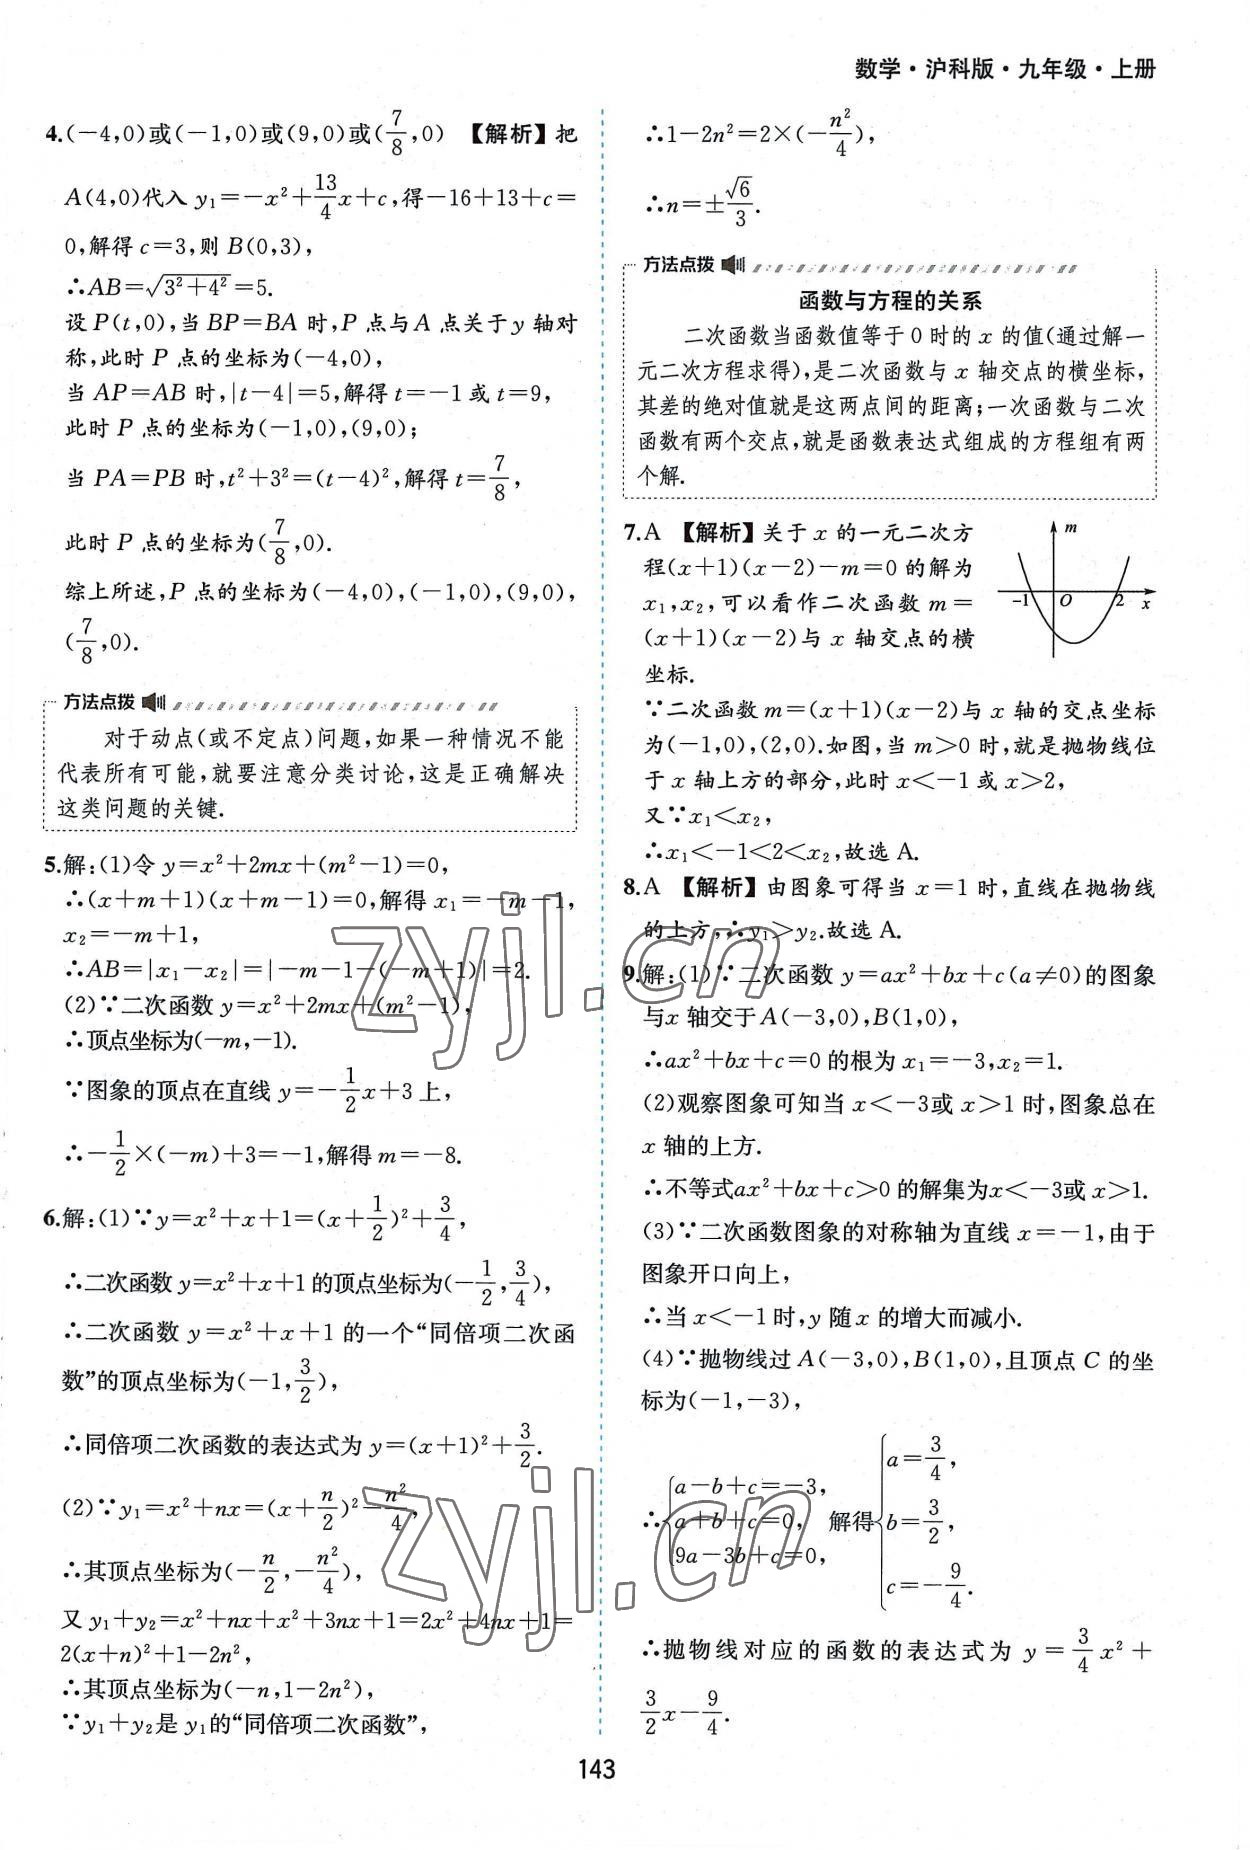 数学·沪科版·九年级·上册
4.(-4,0)或(-1,0)或(9,0)或(7/8,0) 【解析】把
A(4,0)代入 y₁=-x²+13/4x+c,得-16+13+c=
0,解得 c=3,则 B(0,3),
∴AB=√(3²+4²)=5.
设 P(t,0),当 BP=BA 时,P 点与 A 点关于 y 轴对
称,此时 P 点的坐标为(-4,0),
当 AP=AB 时,|t-4|=5,解得 t=-1 或 t=9,
此时 P 点的坐标为(-1,0),(9,0);
当 PA=PB 时,t²+3²=(t-4)²,解得 t=7/8,
此时 P 点的坐标为(7/8,0).
综上所述,P 点的坐标为(-4,0),(-1,0),(9,0),
(7/8,0).
方法点拨
对于动点(或不定点)问题,如果一种情况不能
代表所有可能,就要注意分类讨论,这是正确解决
这类问题的关键.
5.解:(1)令 y=x²+2mx+(m²-1)=0,
∴(x+m+1)(x+m-1)=0,解得 x₁=-m-1,
x₂=-m+1,
∴AB=|x₁-x₂|=|-m-1-(-m+1)|=2.
(2)∵二次函数 y=x²+2mx+(m²-1),
∴顶点坐标为(-m,-1).
∵图象的顶点在直线 y=-1/2x+3 上,
∴-1/2×(-m)+3=-1,解得 m=-8.
6.解:(1)∵y=x²+x+1=(x+1/2)²+3/4,
∴二次函数 y=x²+x+1 的顶点坐标为(-1/2,3/4),
∴二次函数 y=x²+x+1 的一个“同倍项二次函
数”的顶点坐标为(-1,3/2),
∴同倍项二次函数的表达式为 y=(x+1)²+3/2.
(2)∵y₁=x²+nx=(x+n/2)²-n²/4,
∴其顶点坐标为(-n/2,-n²/4),
又 y₁+y₂=x²+nx+x²+3nx+1=2x²+4nx+1=
2(x+n)²+1-2n²,
∴其顶点坐标为(-n,1-2n²),
∵y₁+y₂是 y₁的“同倍项二次函数”,
∴1-2n²=2×(-n²/4),
∴n=±√6/3.
方法点拨
函数与方程的关系
二次函数当函数值等于 0 时的 x 的值(通过解一
元二次方程求得),是二次函数与 x 轴交点的横坐标,
其差的绝对值就是这两点间的距离;一次函数与二次
函数有两个交点,就是函数表达式组成的方程组有两
个解.
7.A 【解析】关于 x 的一元二次方
程(x+1)(x-2)-m=0 的解为
x₁,x₂,可以看作二次函数 m=
(x+1)(x-2)与 x 轴交点的横
坐标.
m
-1 O 2 x
∵二次函数 m=(x+1)(x-2)与 x 轴的交点坐标
为(-1,0),(2,0).如图,当 m>0 时,就是抛物线位
于 x 轴上方的部分,此时 x<-1 或 x>2,
又∵x₁<x₂,
∴x₁<-1<2<x₂,故选 A.
8.A 【解析】由图象可得当 x=1 时,直线在抛物线
的上方,∴y₁>y₂.故选 A.
9.解:(1)∵二次函数 y=ax²+bx+c(a≠0)的图象
与 x 轴交于 A(-3,0),B(1,0),
∴ax²+bx+c=0 的根为 x₁=-3,x₂=1.
(2)观察图象可知当 x<-3或 x>1 时,图象总在
x 轴的上方.
∴不等式ax²+bx+c>0 的解集为x<-3或 x>1.
(3)∵二次函数图象的对称轴为直线 x=-1,由于
图象开口向上,
∴当 x<-1 时,y 随 x 的增大而减小.
(4)∵抛物线过 A(-3,0),B(1,0),且顶点 C 的坐
标为(-1,-3),
∴{a-b+c=-3, a+b+c=0, 9a-3b+c=0, 解得{a=3/4, b=3/2, c=-9/4.
∴抛物线对应的函数的表达式为 y=3/4x²+
3/2x-9/4.
143
zyjl.cn
zyjl.cn